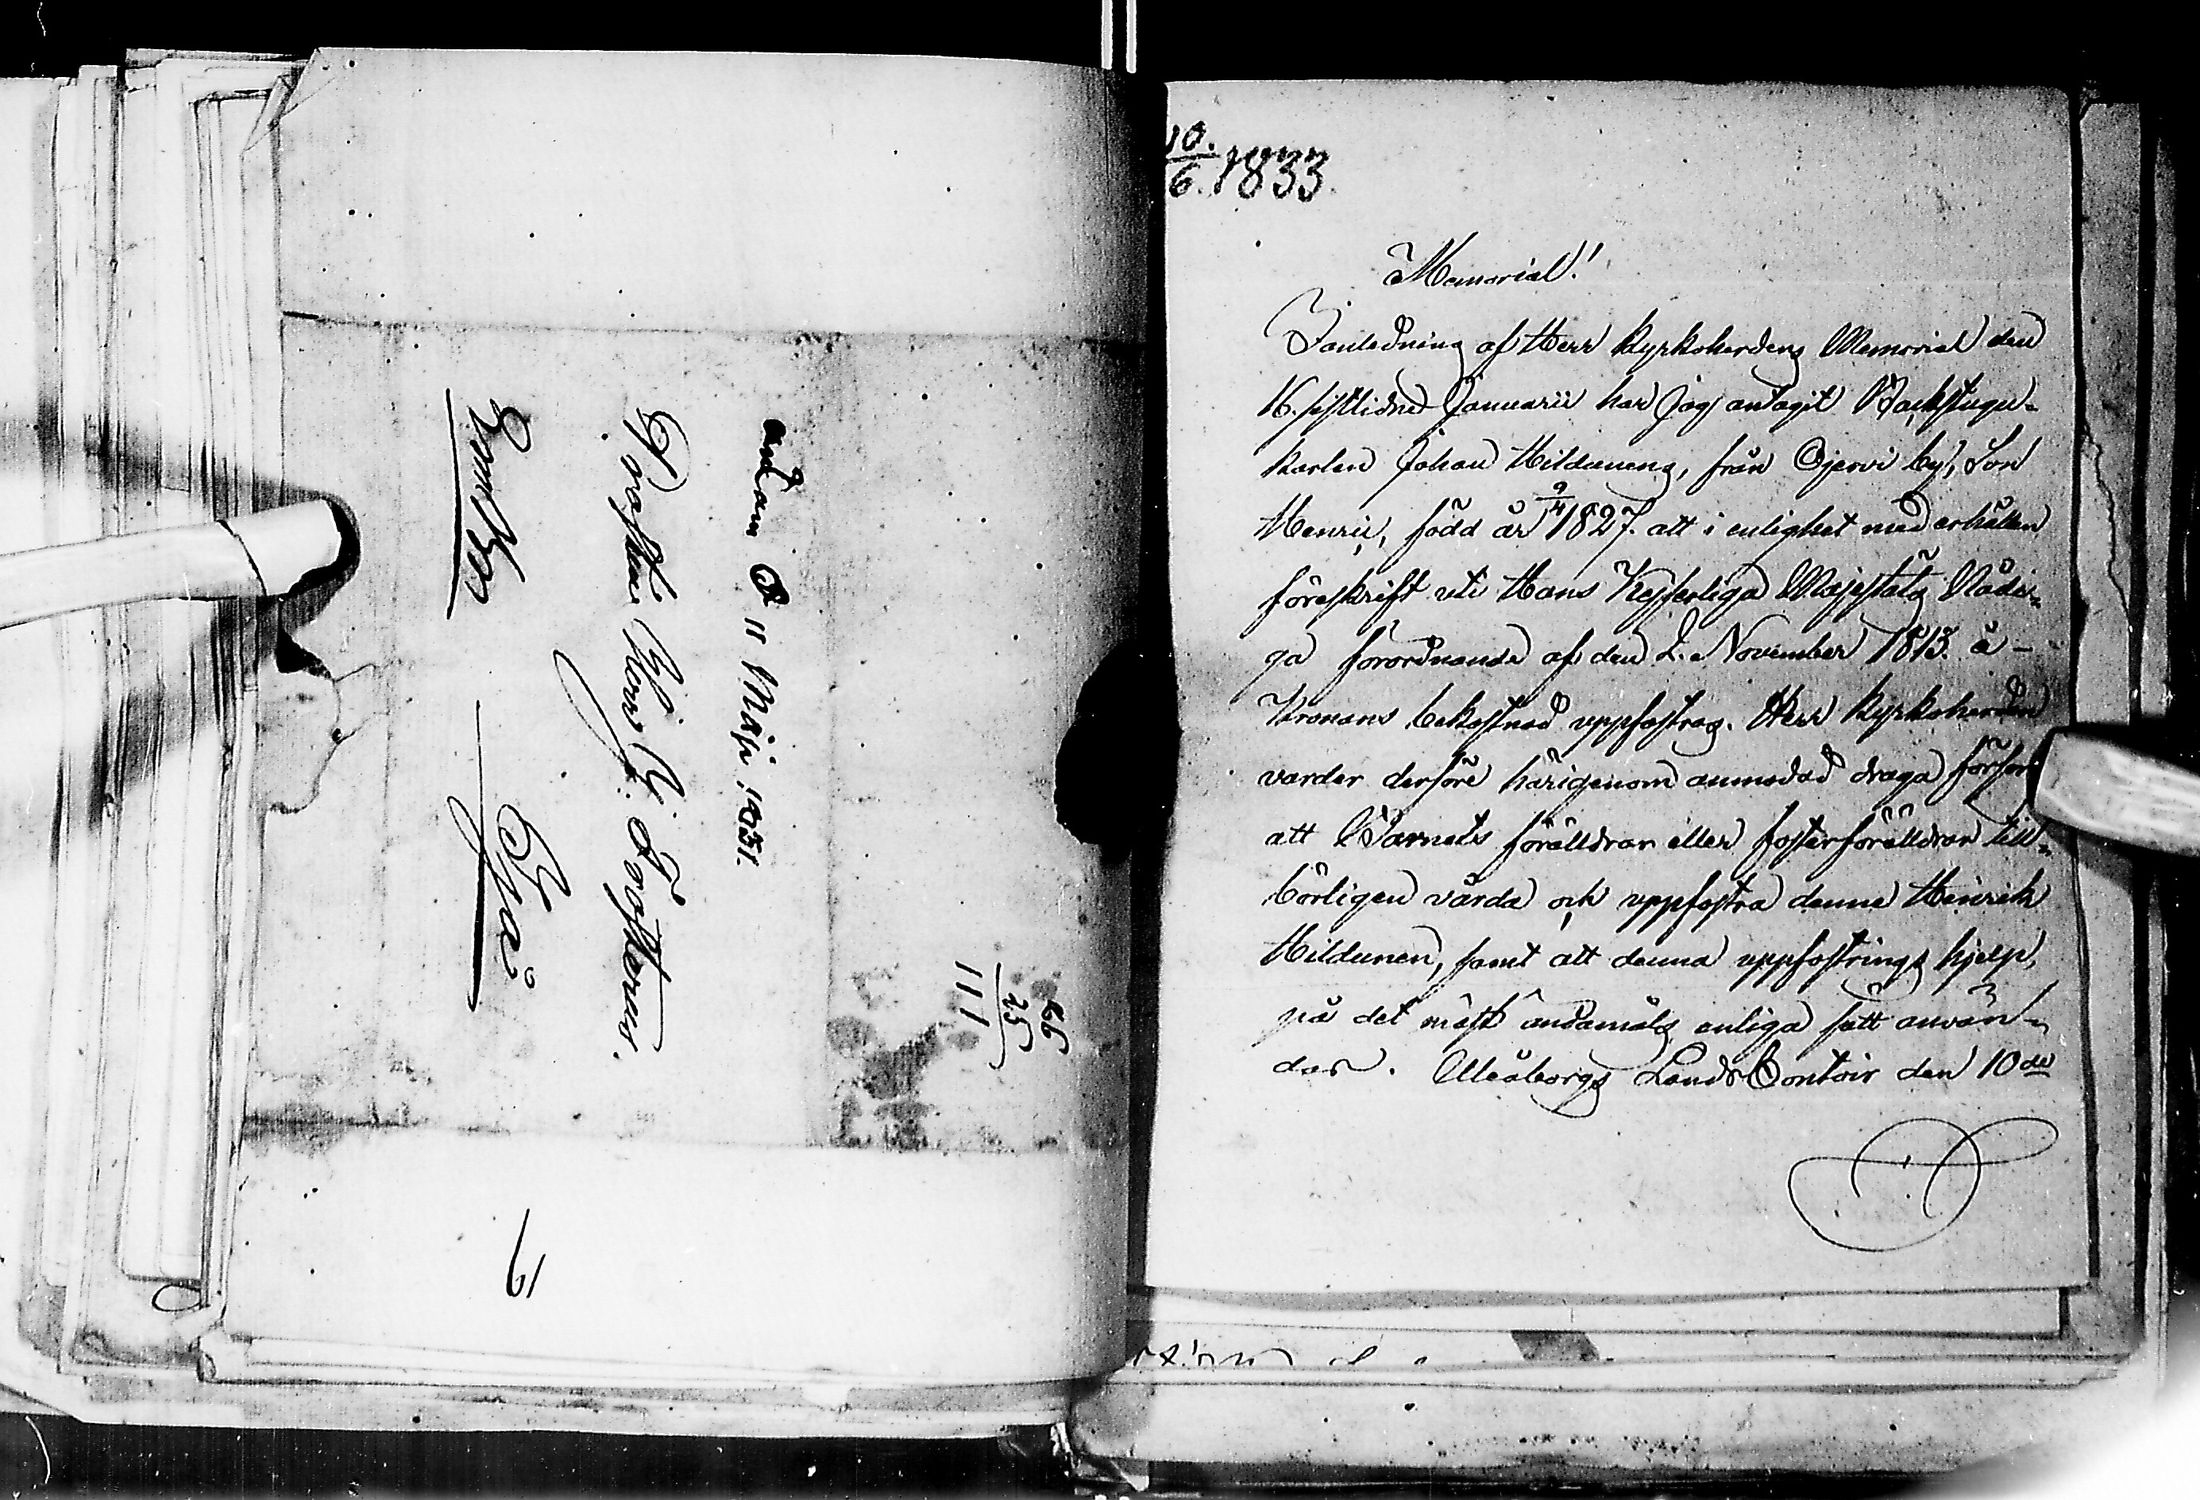 ank. den 11 Maji 1851.
Prosten Herr J. Forsterus.
6
66
25
111
10.
6. 1833.
Memorial!
I anledning af Herr Kyrkoherdens Memorial den
16. sistlidne Januarii har jag antagit Backstugu-
karlen Johan Hildunens, från Ojervi by, Son
Henric, född år 9/4 1827. att i enlighet med erhållen
föreskrift uti Hans Kejserliga Majestäts Nådi-
ga förordnande af den 2. November 1813. å
Kronans bekostnad uppfostras. Herr Kyrkoherden
varder derföre härigenom anmodad draga försorg
att Barnets föräldrar eller fosterföräldrar till-
börligen vårda och uppfostra denne Heinrik
Hildunen, samt att denna uppfostrings hjelp,
på det mäst ändamåls enliga sätt använ-
das. Uleåborgs Lands Contoir den 10de